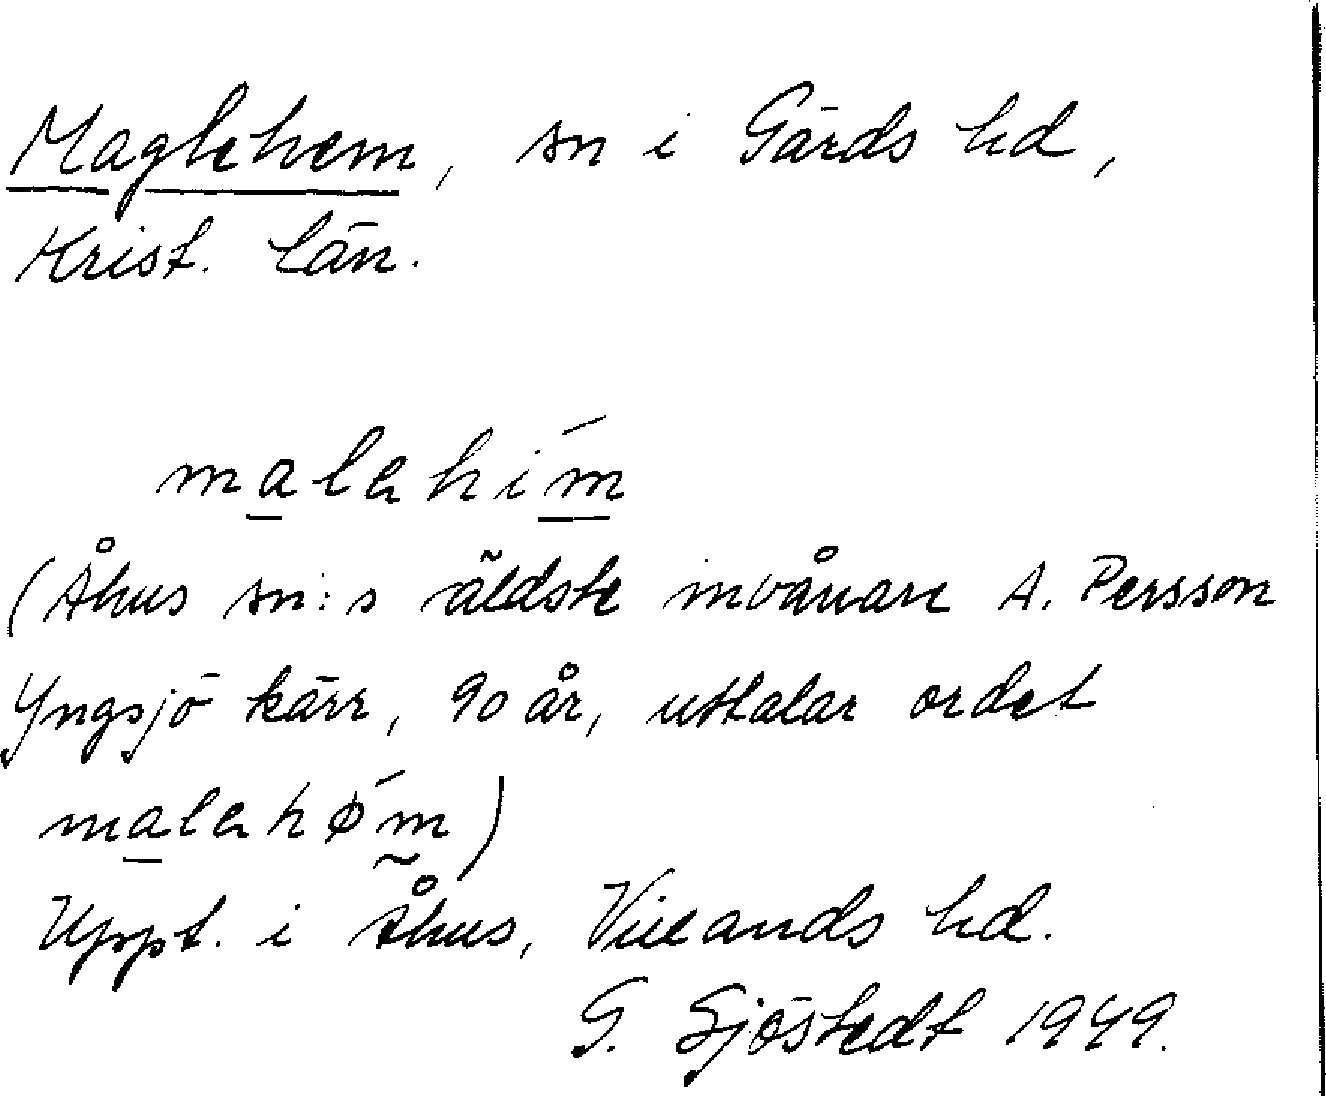 Maglehem, sn i Gärds hd,
Krist. län.
malehím
(Åhus sn:s äldste invånare A. Persson
Yngsjö kärr, 90 år, uttalar ordet
malehǿm)
Uppt. i Åhus, Villands hd.
G. Sjöstedt 1949.